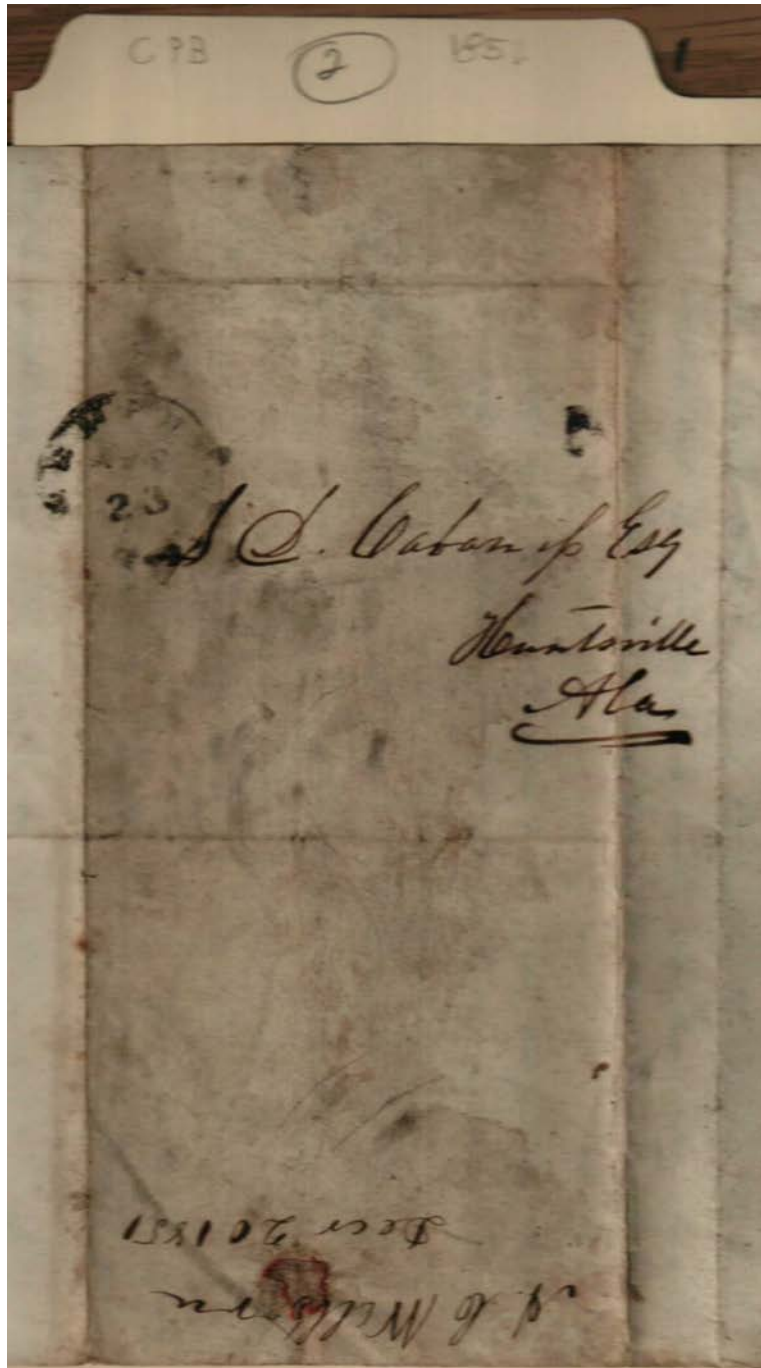 CPB 2 1851 1
23
S D. Cabaniss Esq
Huntsville
Ala
Decr 20 1851